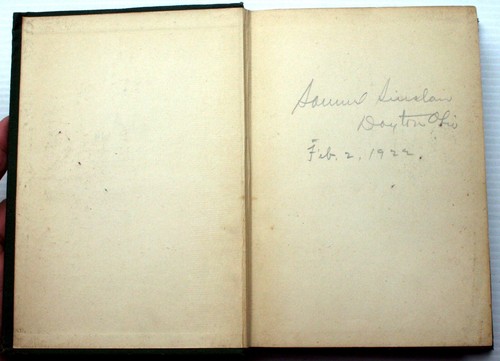 Samuel Sinclair
Dayton Ohio
Feb. 2, 1922.